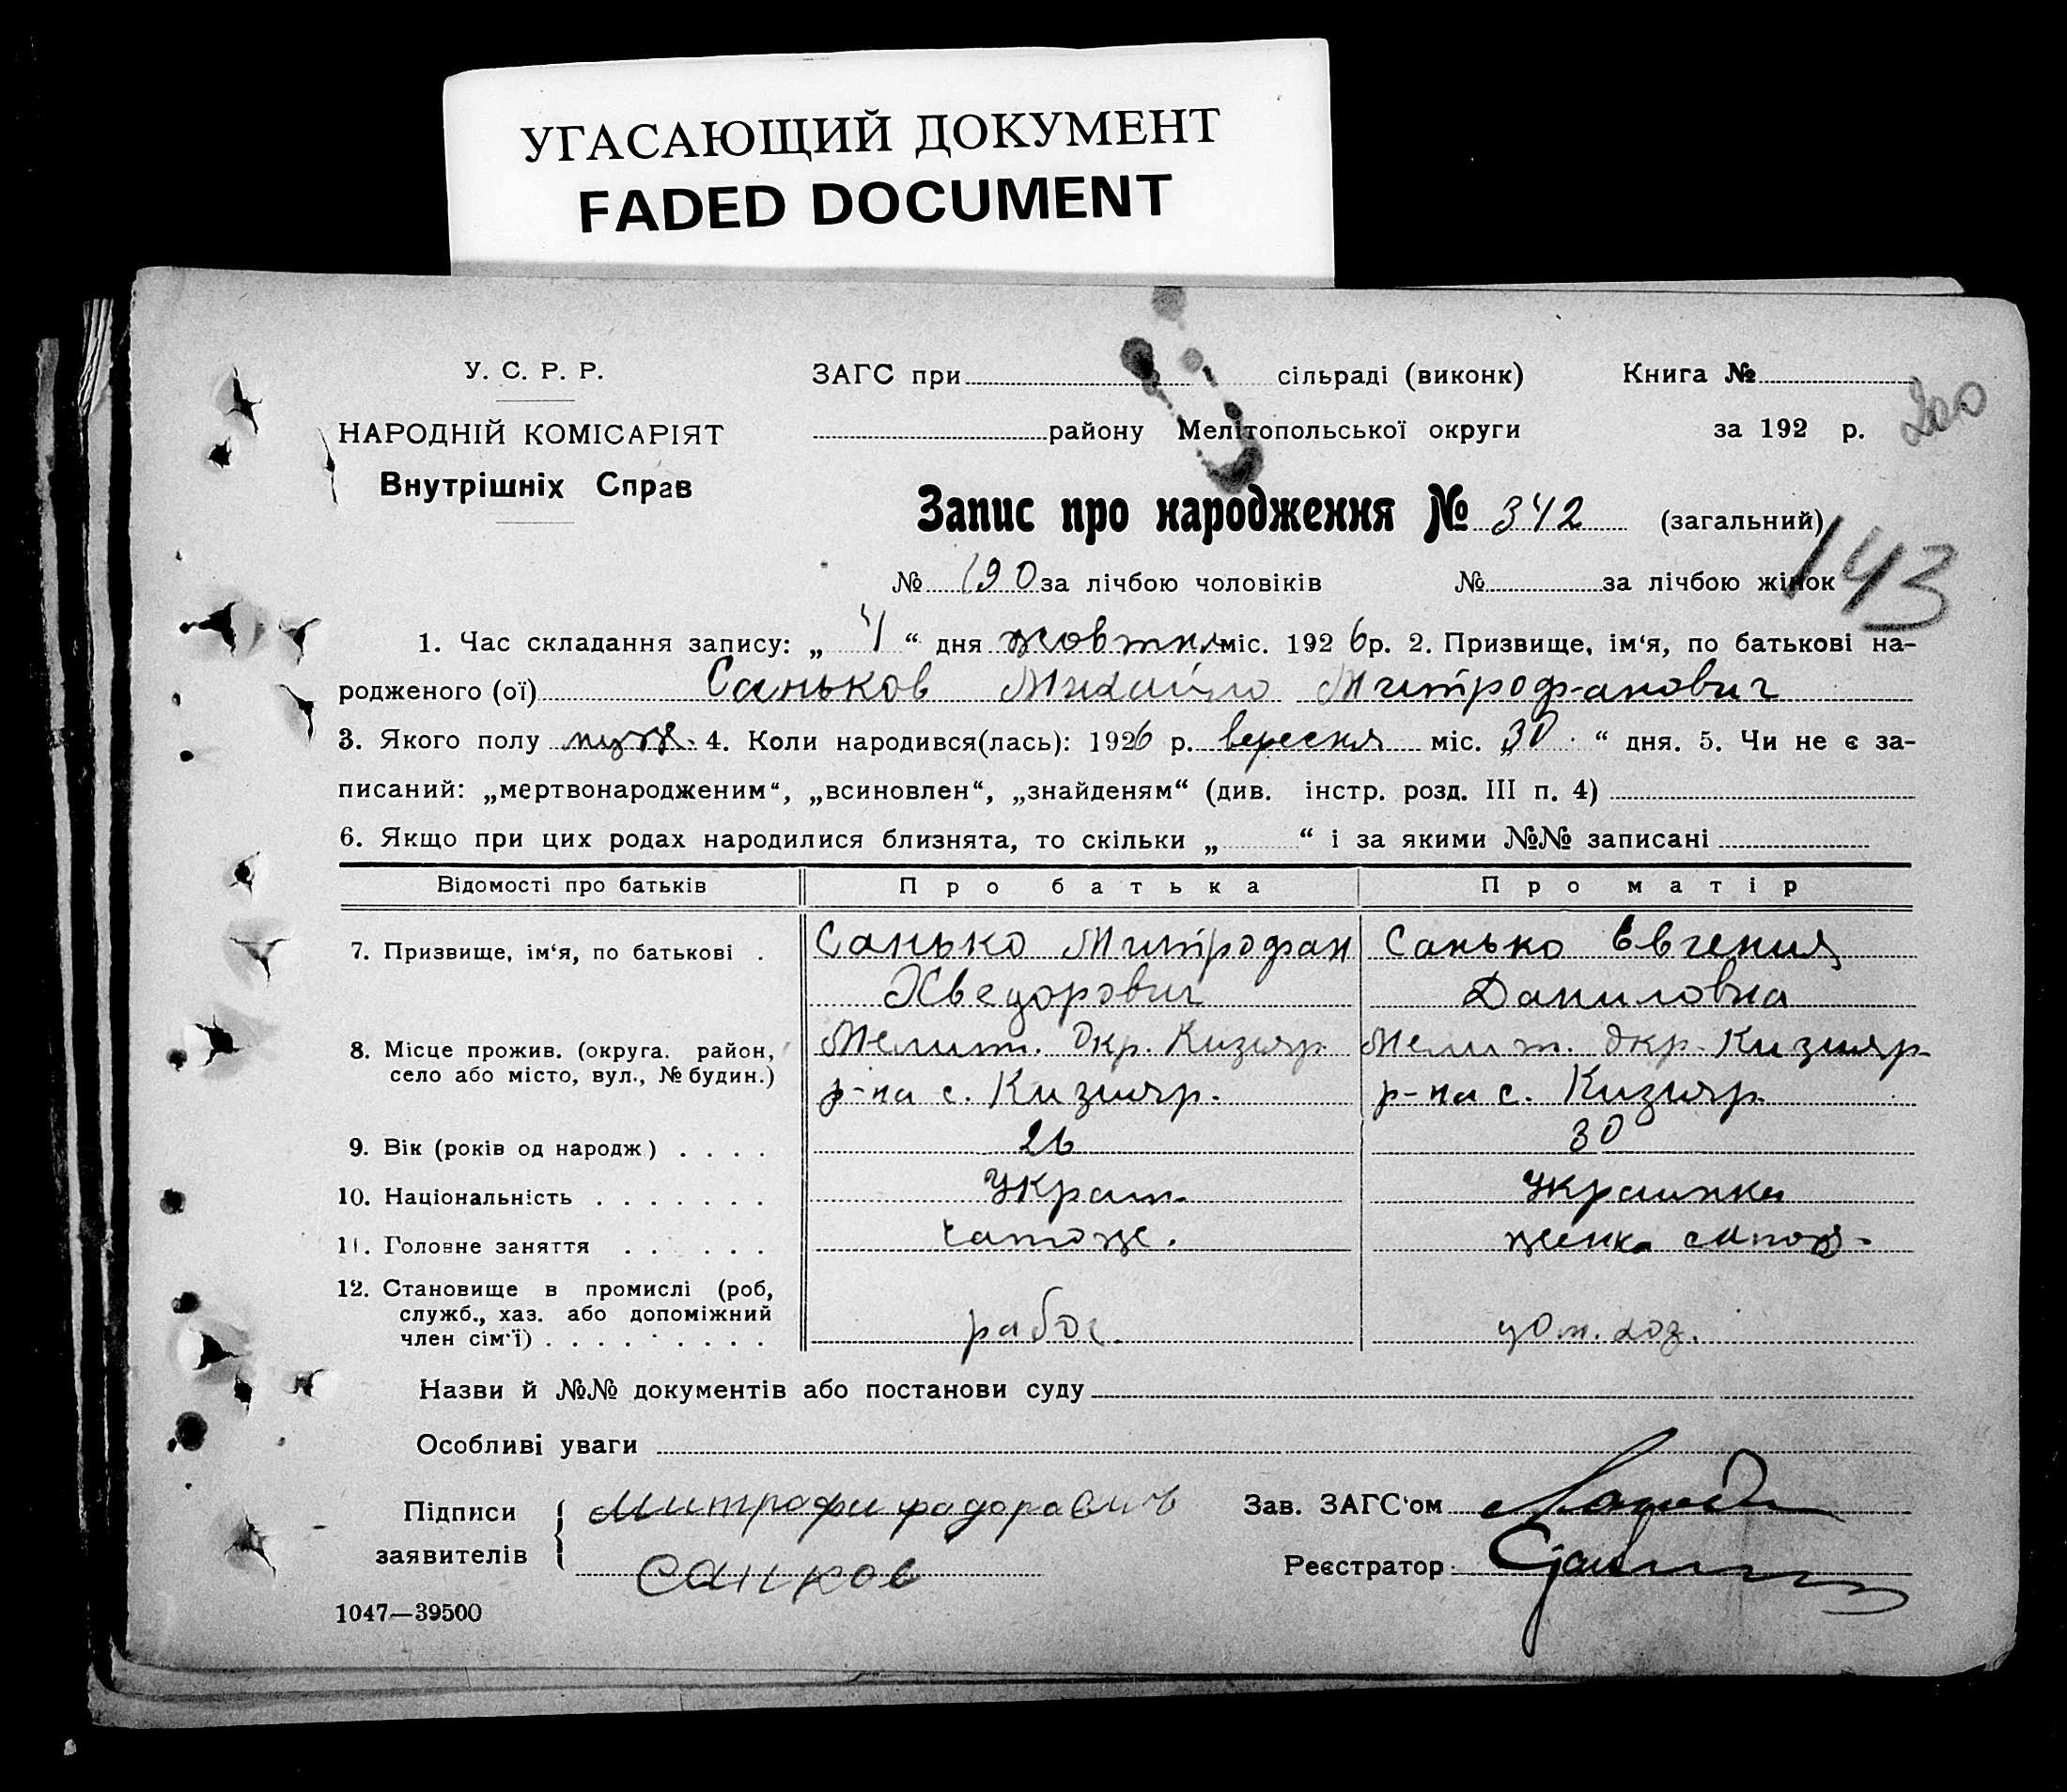 УГАСАЮЩИЙ ДОКУМЕНТ
FADED DOCUMENT
У. С. Р. Р.
НАРОДНІЙ КОМІСАРІЯТ
Внутрішніх Справ
ЗАГС при сільраді (виконк)
Книга №
200
району Мелітопольської округи
за 192 р.
Запис про народження № 342 (загальний)
143
№ 190 за лічбою чоловіків № за лічбою жінок
1. Час складання запису: „ 4 “ дня жовтня міс. 1926 р. 2. Призвище, ім‘я, по батькові на-
родженого (ої) Саньков Михайло Митрофанович
3. Якого полу муж. 4. Коли народився(лась): 1926 р. вересня міс. „30“ дня. 5. Чи не є за-
писаний: „мертвонародженим“, „всиновлен“, „знайденям“ (див. інстр. розд. III п. 4)
6. Якщо при цих родах народилися близнята, то скільки „ “ і за якими №№ записані
Відомості про батьків Про батька Про матір
7. Призвище, ім‘я, по батькові . Санько Митрофан Санько Евгения
Хведорович Даниловна
8. Місце прожив. (округа. район, Мелит. Окр. Кизияр. Мелит. Окр. Кизияр.
село або місто, вул., № будин.) р-на с. Кизияр. р-на с. Кизияр.
9. Вік (років од народж) . . . . 26 30
10. Національність . . . . . . . Украин. Украинка
11. Головне заняття . . . . . . сапож. женка сапож.
12. Становище в промислі (роб,
служб., хаз. або допоміжний
член сім‘ї) . . . . . . . . . рабоч. дом. хоз.
Назви й №№ документів або постанови суду
Особливі уваги
Підписи
заявителів
Митрофи фадоравич
Санков
Зав. ЗАГС‘ом
Реєстратор
1047—39500